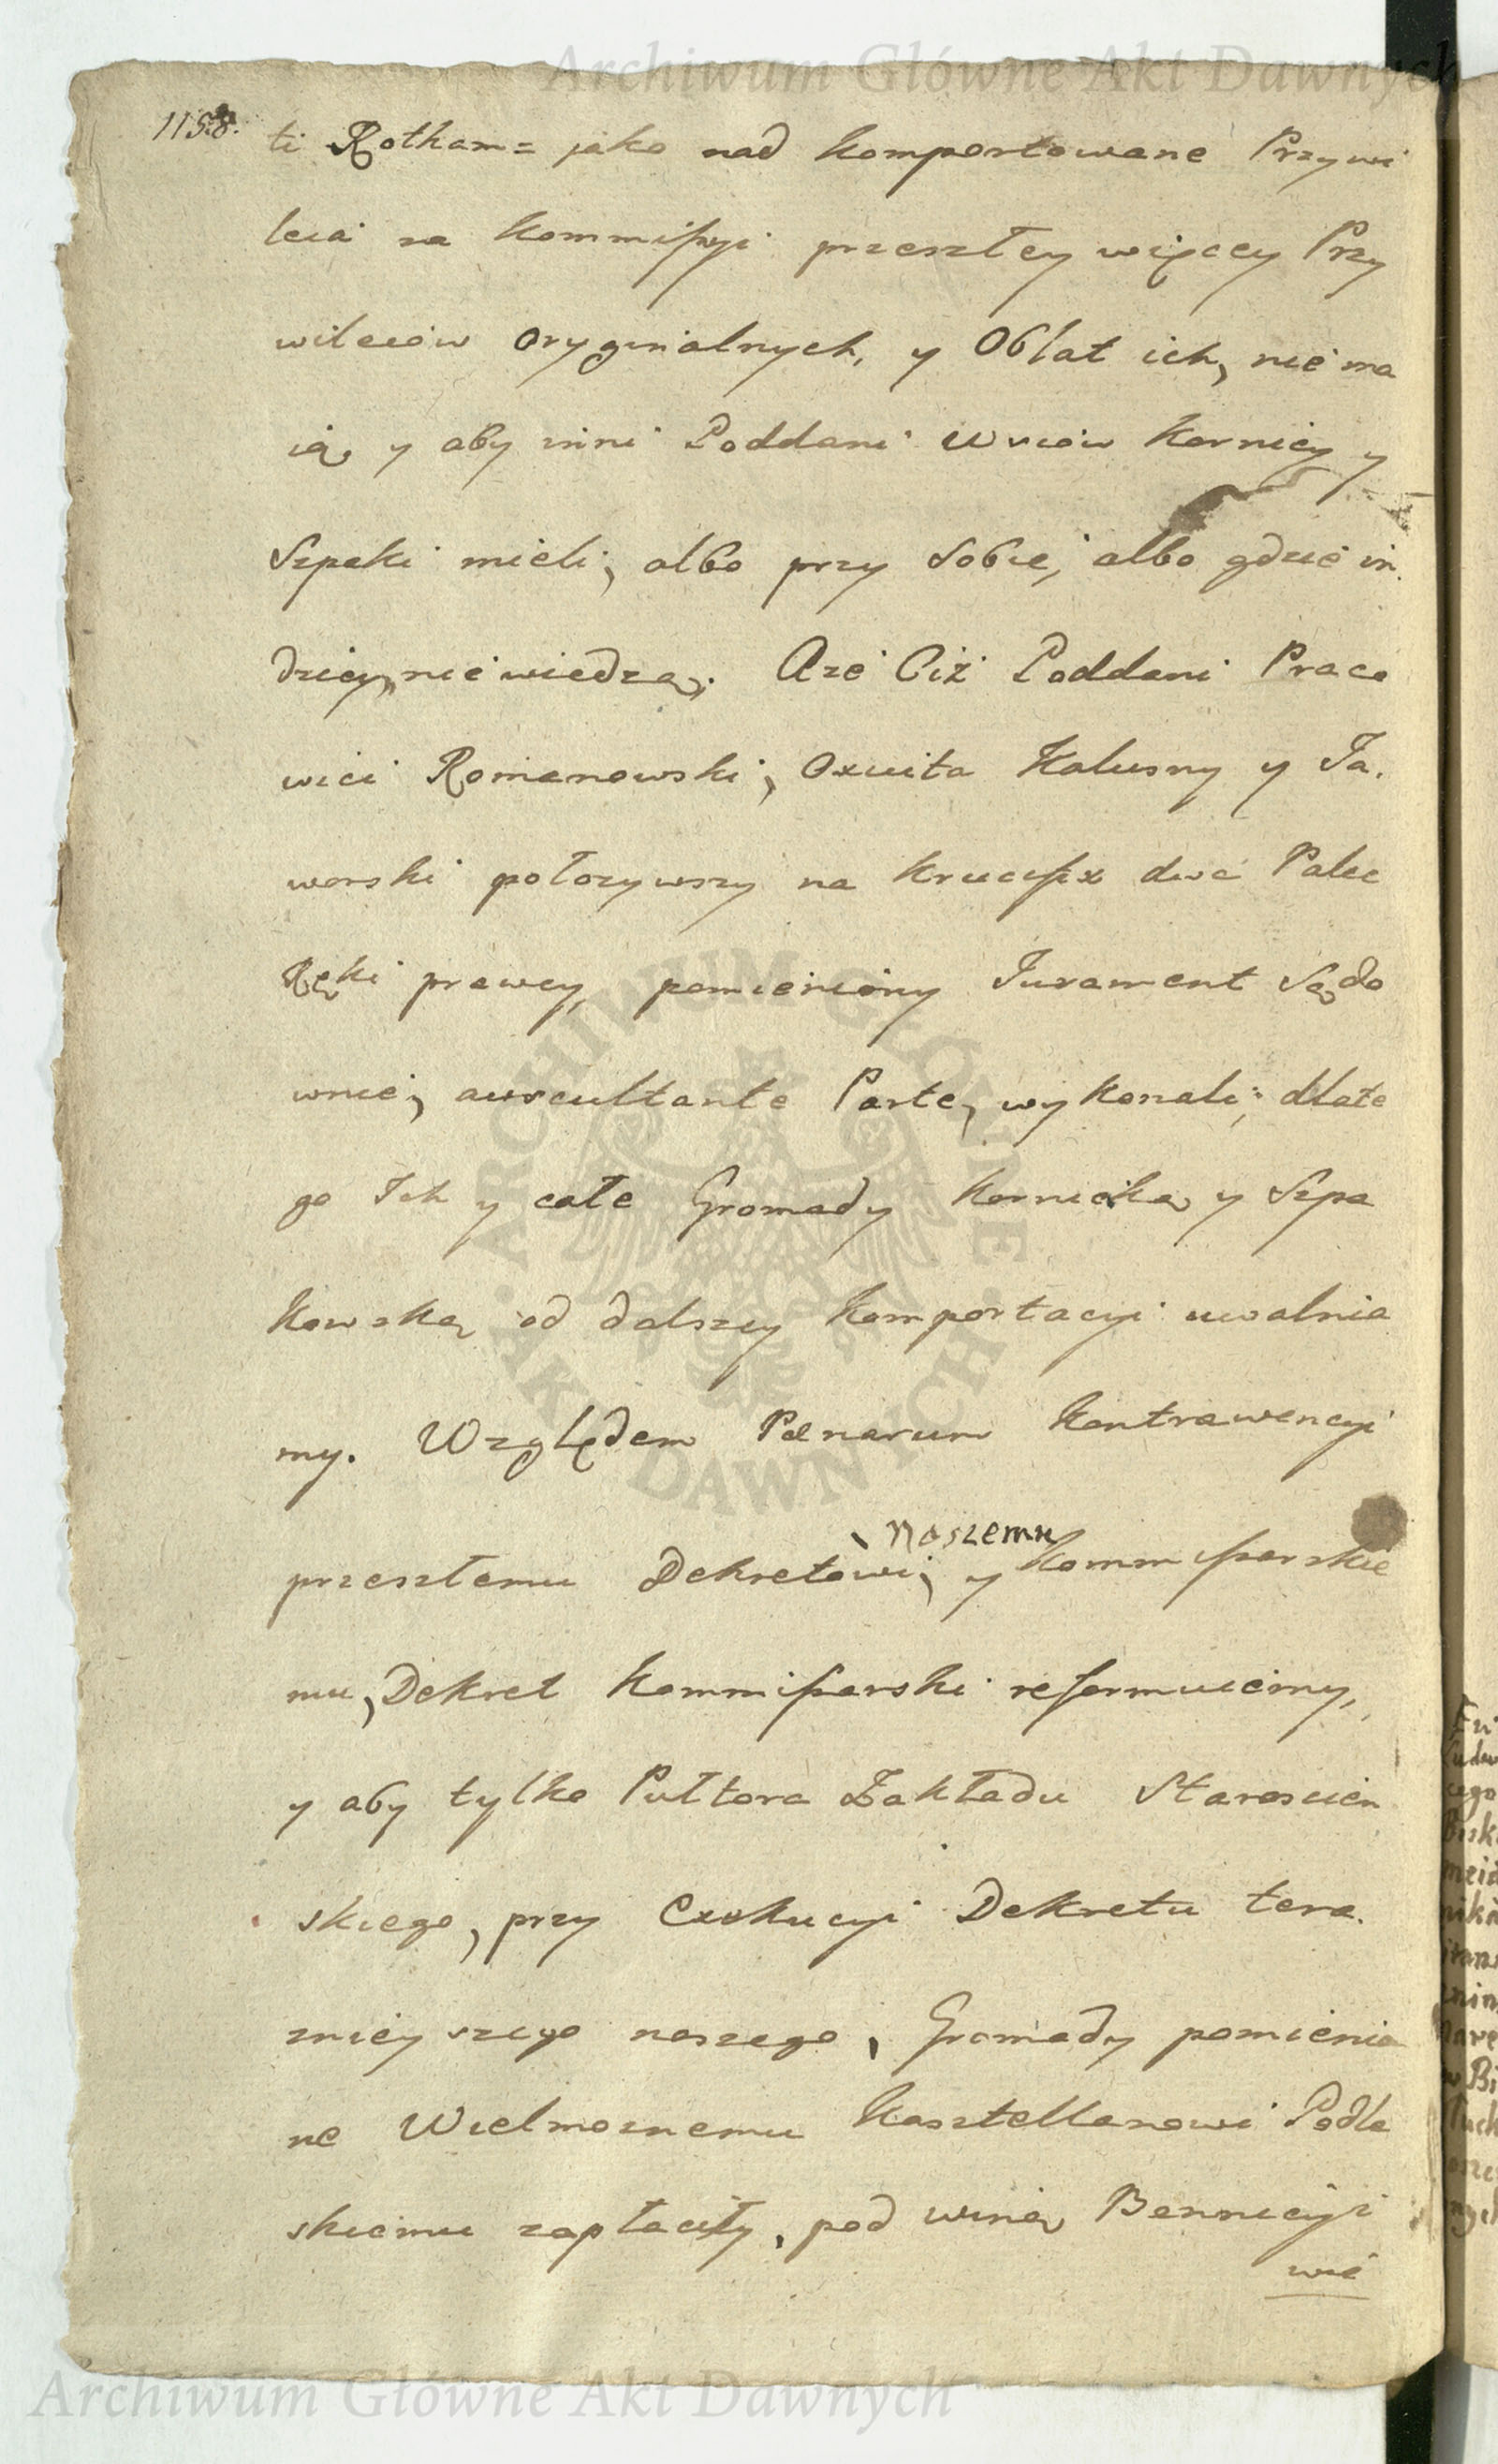 Archiwum Główne Akt Dawnych
1158.
ti Rotham= jako nad komportowane Przywi
leia na kommissyi przeszłey więcey Przy
wileiow oryginalnych, y Oblat ich, nie ma
ią, y aby inni Poddani Wsiow Kornicy y
Szpaki mieli, albo przy sobie, albo gdzie in
dziey, nie wiedzą. A że Ciż Poddani Praco
wici Romanowski, Oxiuta Kalusny y Ja.
worski położywszy na krucyfix dwa Palce
Ręki prawey, pomieniony Jurament Sądo
wnie, auscultante Parte, wykonali; dlate
go Ich y całe Gromady Kornicką y Szpa
kowską od dalszey komportacyi uwalnia
my. Względem Pænarum kontrawencyi
naszemu
przeszłemu Dekretowi, y kommissarskie
mu, Dekret kommissarski reformuiemy,
y aby tylko Pułtora Zakładu Staroscien
skiego, przy Exekucyi Dekretu tera.
znieyszego naszego, Gromady pomienio
ne Wielmoznemu Kasztellanowi Podla
skiemu zapłaciły, pod winą Bannicyi
wie
ARCHIWUM GŁÓWNE · AKT DAWNYCH ·
Archiwum Główne Akt Dawnych